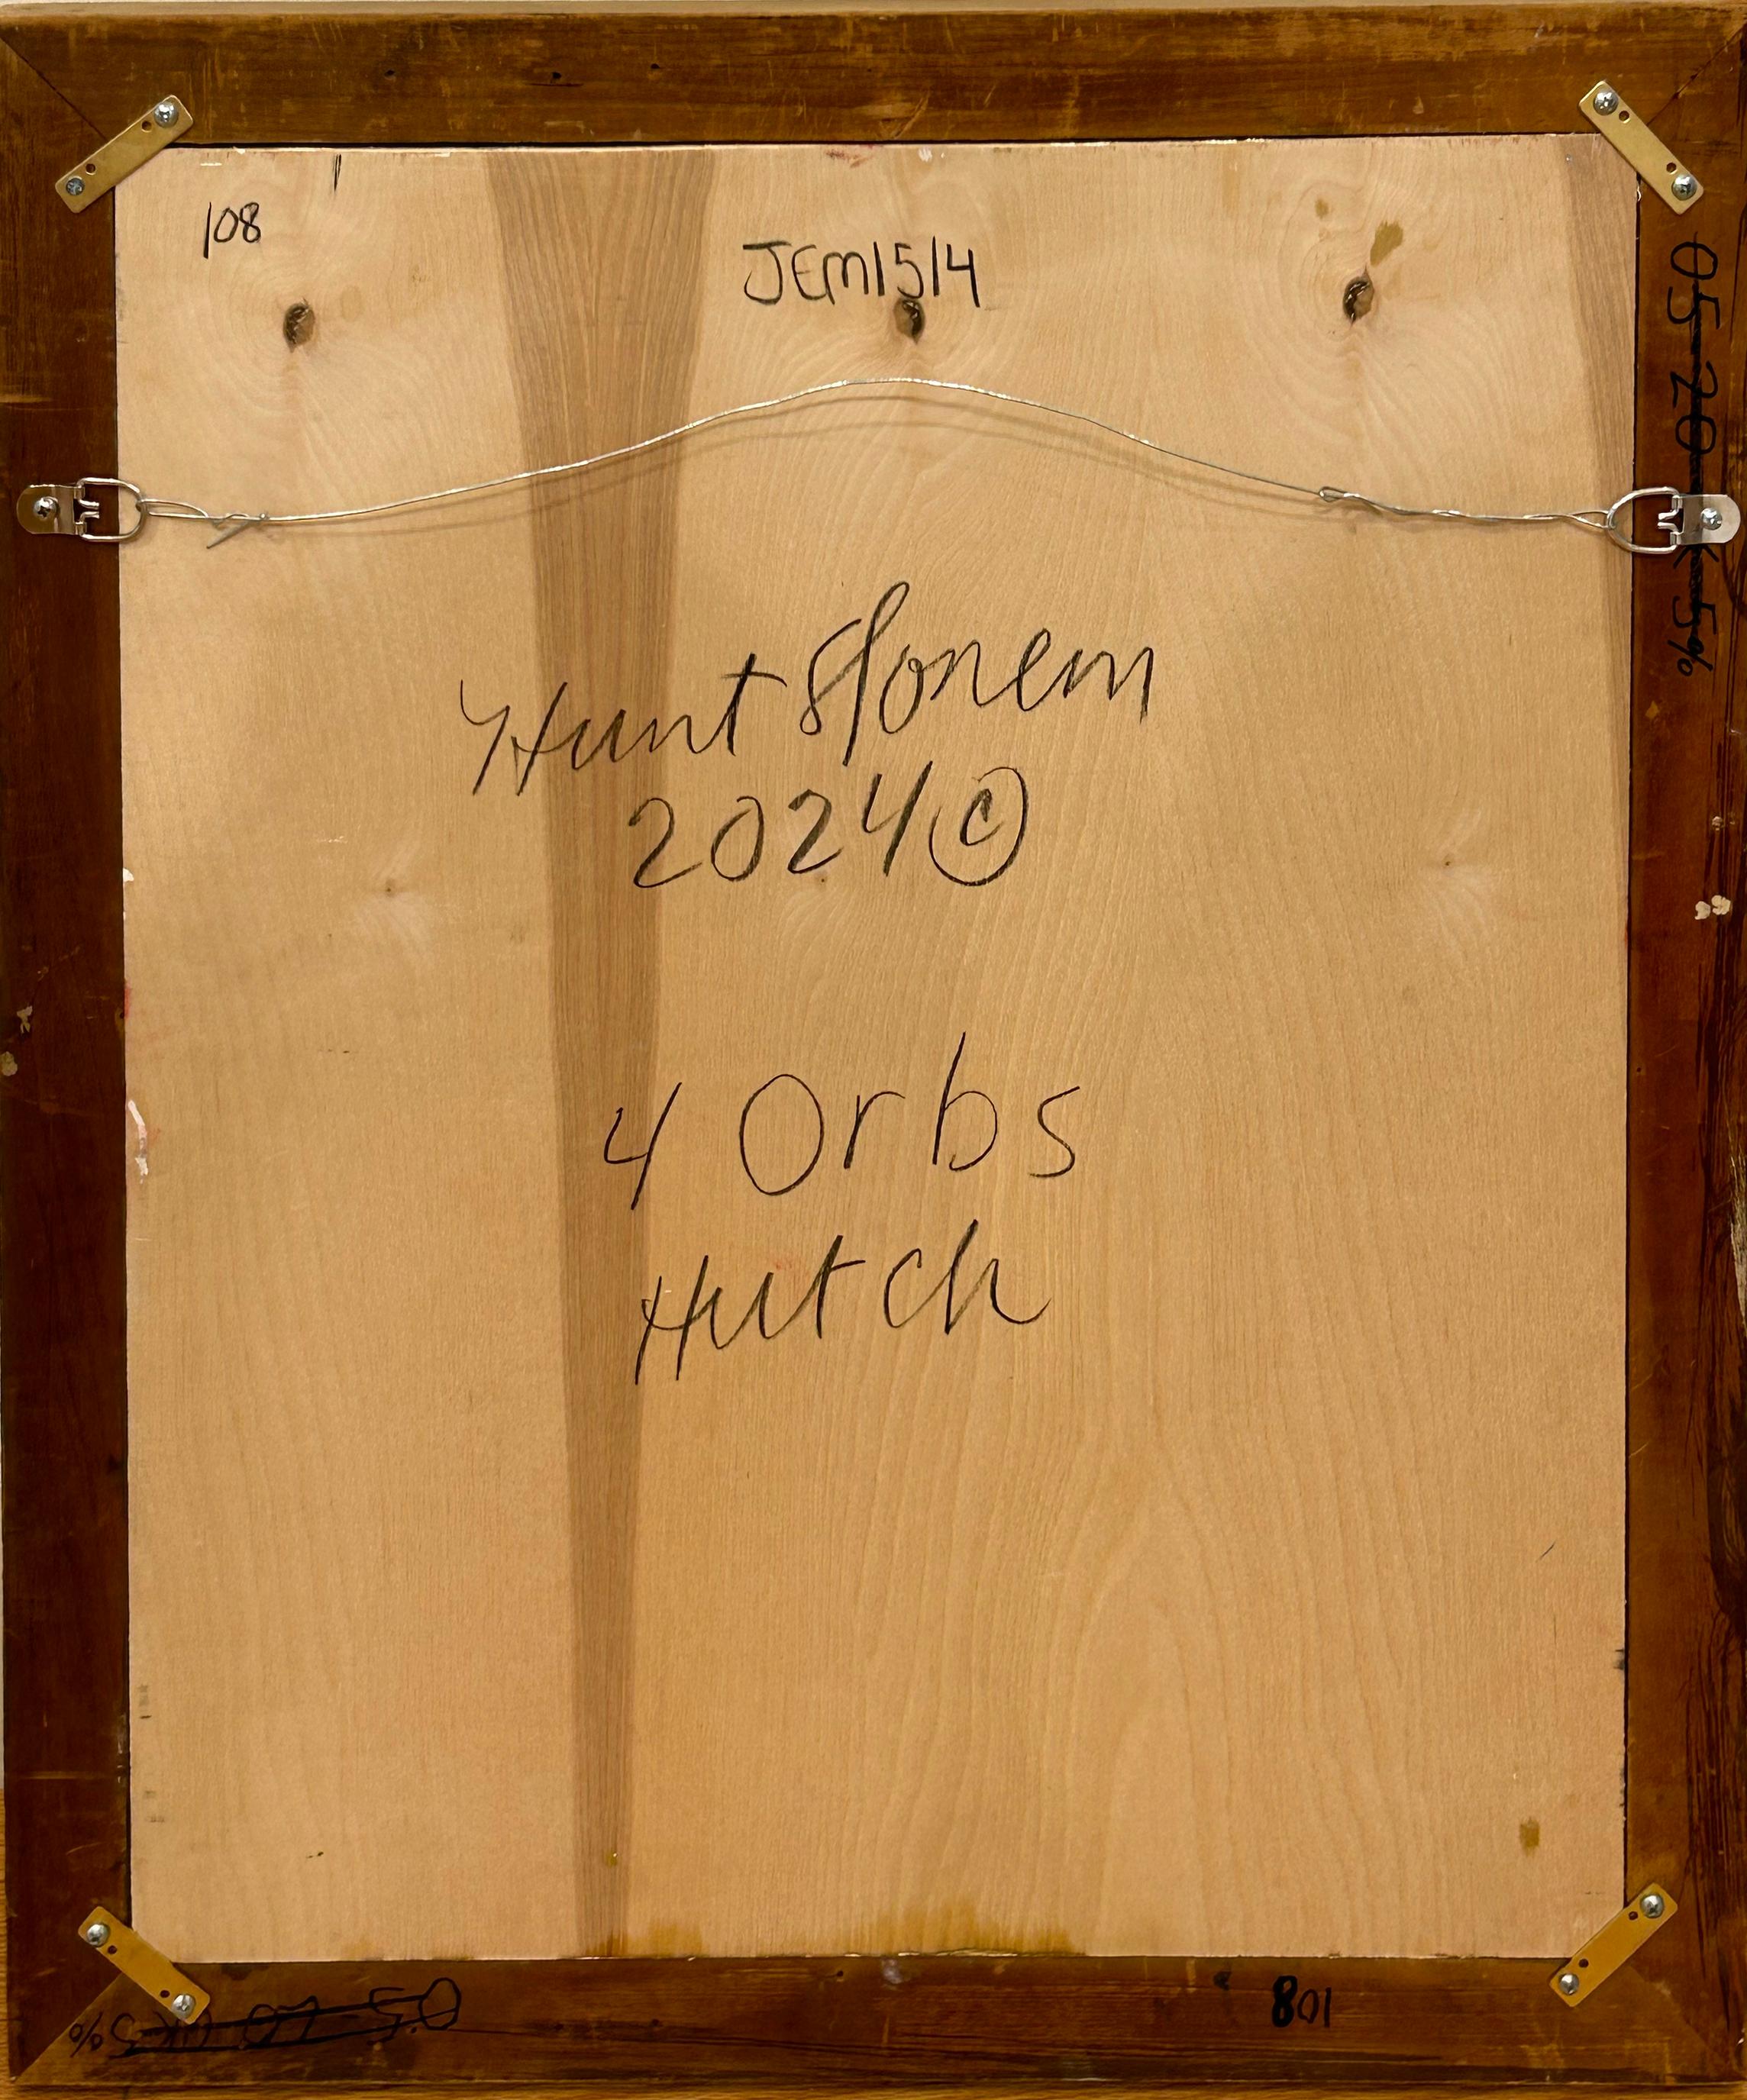 108
JEM1514
Hunt Slonem
2024 ©
4 Orbs
Hutch
108